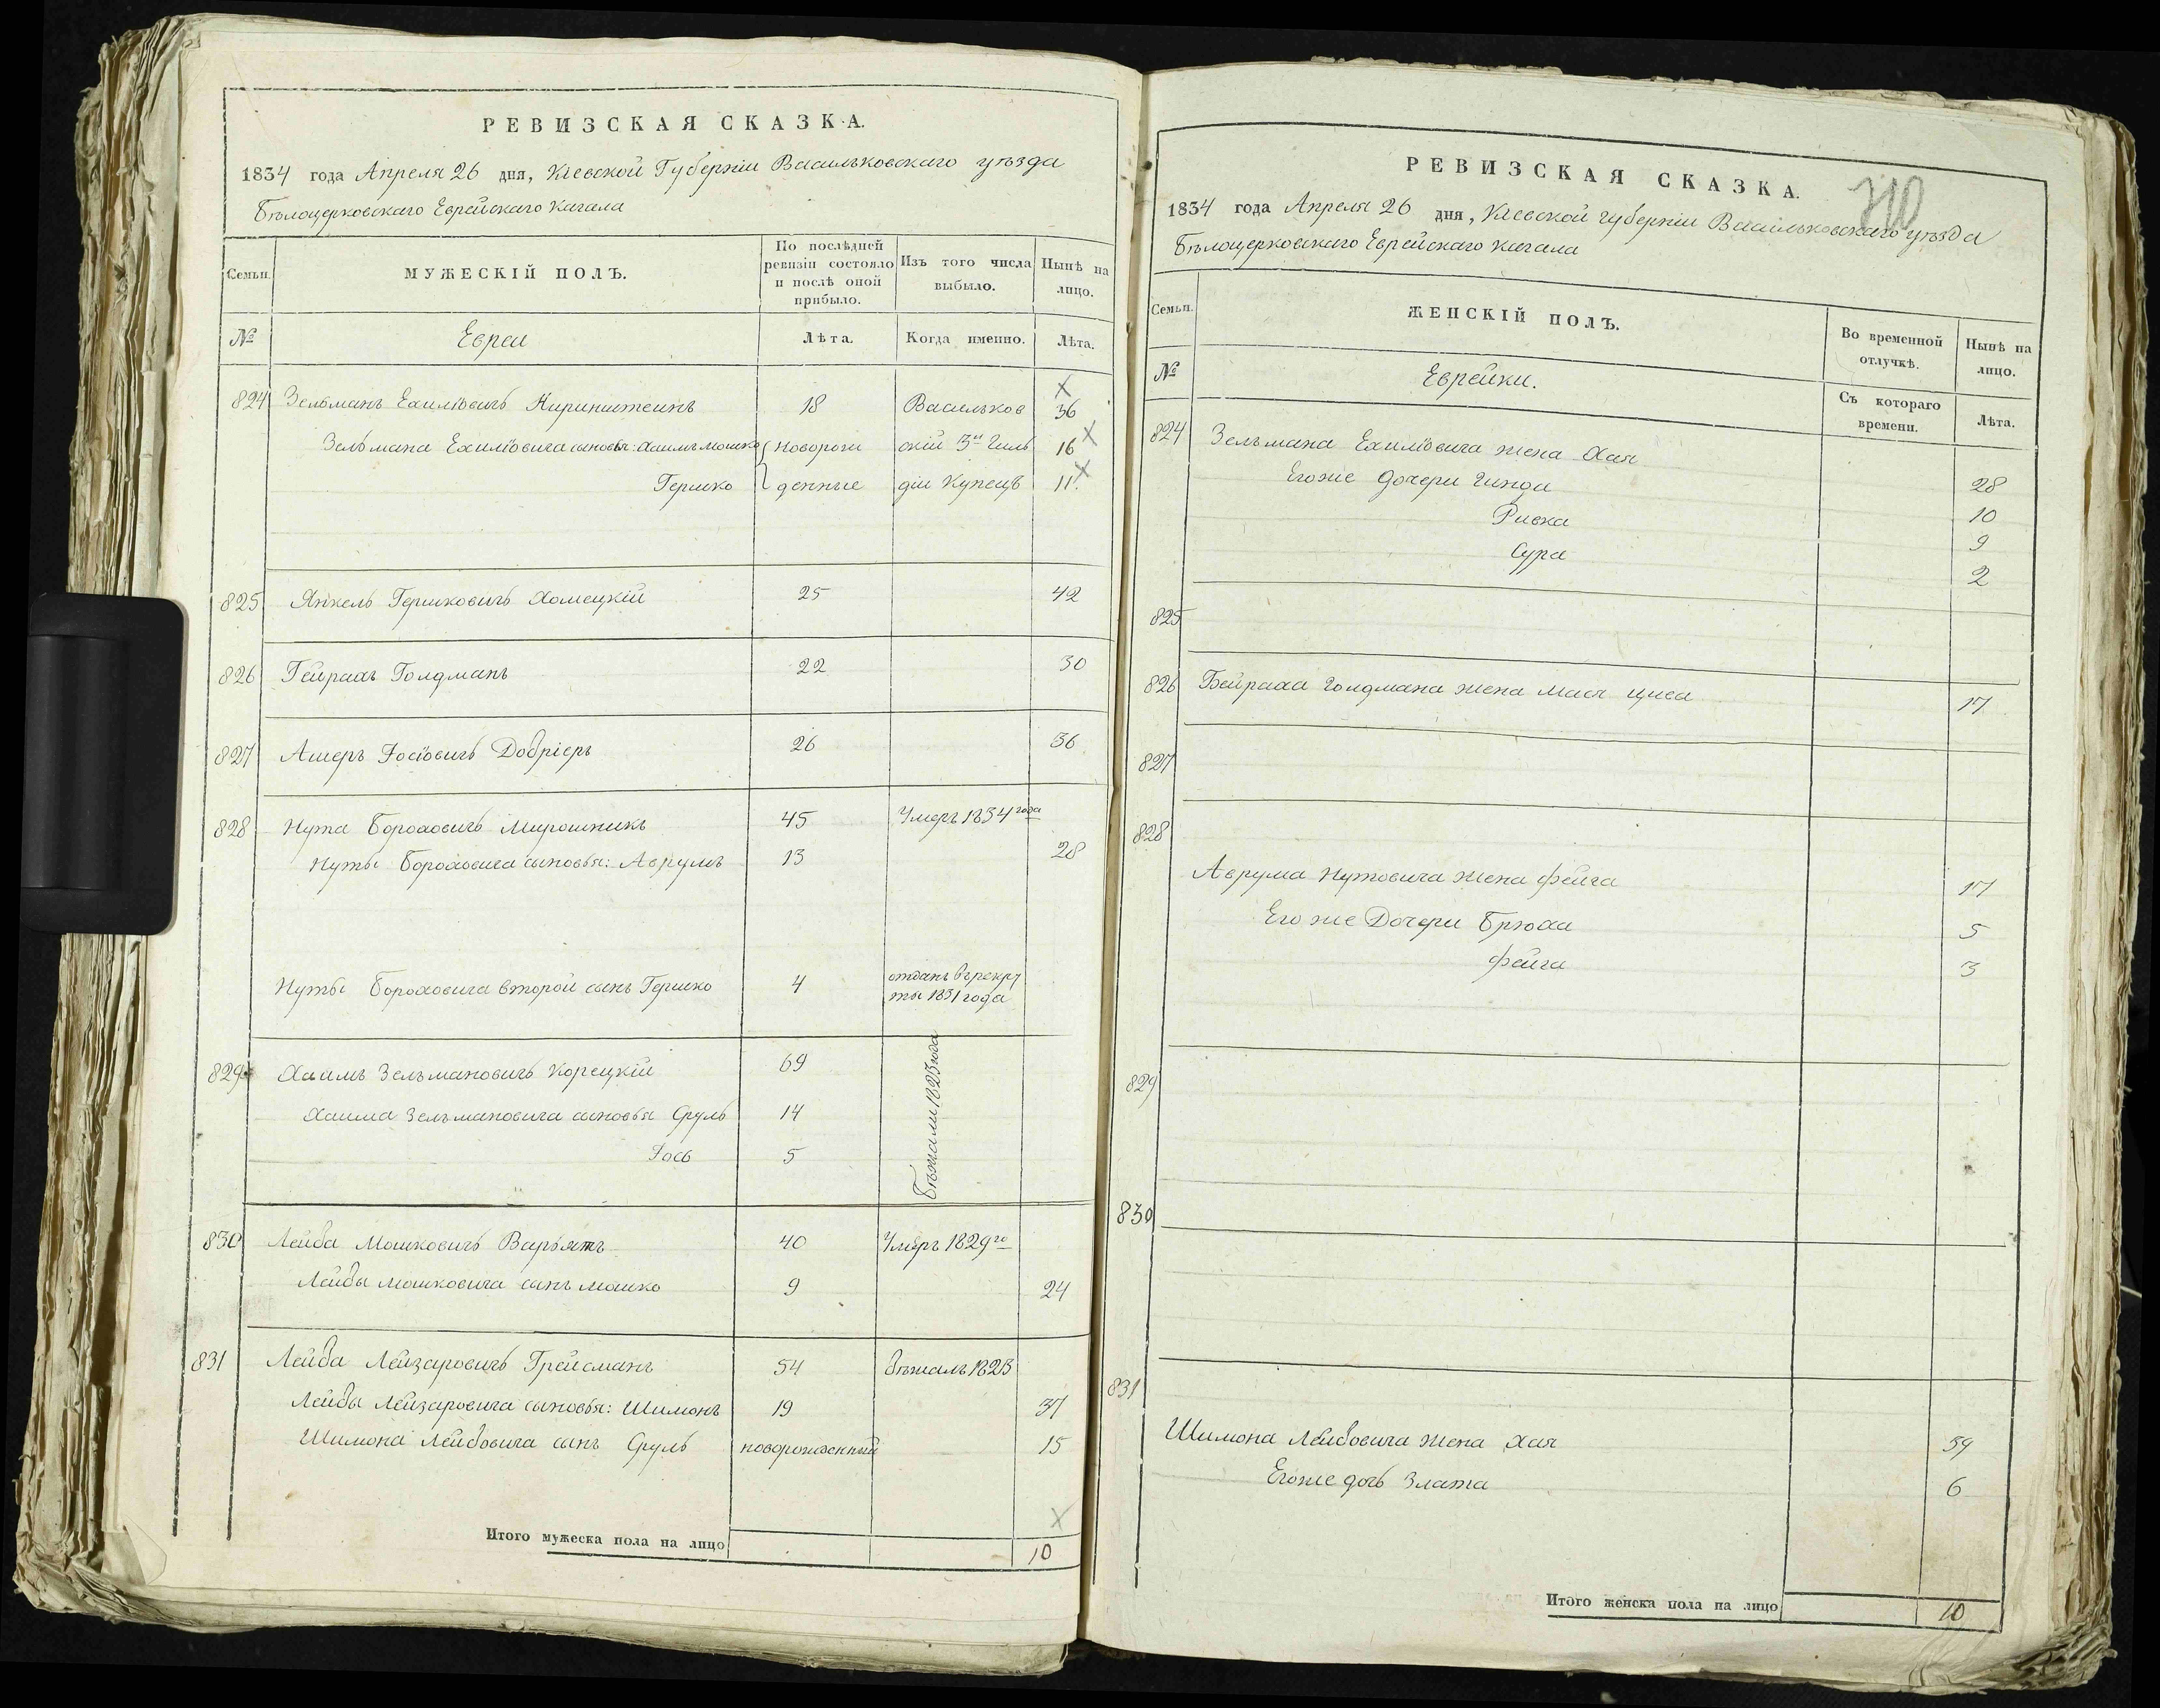 РЕВИЗСКАЯ СКАЗКА.
1834 года Апреля 26 дня, Кіевской Губерніи Васильковскаго уѣзда
Бѣлоцерковскаго Еврейскаго Кагала
Семьи. МУЖЕСКІЙ ПОЛЪ. По послѣдней ревизіи состояло и послѣ оной прибыло. Изъ того числа выбыло. Нынѣ на лицо.
№ Евреи Лѣта. Когда именно. Лѣта.
824 Зельманъ Ехиліовичъ 18 Васильков 36
Зельмана Ехиліовича сыновья: Хаимъ Мошко новорож скій 3й Гиль 16
Гершко денные діи Купецъ 11
825 Янкель Гершковичъ Хомецкій 25 42
826 Гейрахъ Голдманъ 22 30
827 Ашеръ Іосіовичъ Добріеръ 26 36
828 Нута Бороховичъ Мирошникъ 45 Умеръ 1834 года
Нуты Бороховича сыновья: Аврумъ 13 28
Нуты Бороховича второй сынъ Гершко 4 отданъ въ рекру
ты 1831 года
829 Хаимъ Зельмановичъ Корецкій 69 Бѣжали 1823 года
Хаима Зельмановича сыновья Сруль 14
Іось 5
830 Лейба Мошковичъ Варьятъ 40 Умеръ 1829го
Лейбы Мошковича сынъ Мошко 9 24
831 Лейба Лейзаровичъ Грейсманъ 54 бѣжалъ 1823
Лейбы Лейзаровича сыновья: Шимонъ 19 37
Шимона Лейбовича сынъ Сруль новорожденный 15
Итого мужеска пола на лицо 10
РЕВИЗСКАЯ СКАЗКА.
1834 года Апреля 26 дня, Кіевской губерніи Васильковскаго уѣзда
Бѣлоцерковскаго Еврейскаго Кагала
Семьи. ЖЕНСКІЙ ПОЛЪ. Во временной отлучкѣ. Нынѣ на лицо.
№ Еврейки. Съ котораго времени. Лѣта.
824 Зельмана Ехиліовича жена Хая 28
Егоже дочери Гинда 10
Ривка 9
Сура 2
825
826 Бейраха Голдмана жена Мася Цива 17
827
828
Аврума Нутовича жена Фейга 17
Егоже Дочери Брюха 5
Фейга 3
829
830
831
Шимона Лейбовича жена Хая 39
Егоже дочь Злата 6
Итого женска пола на лицо 10